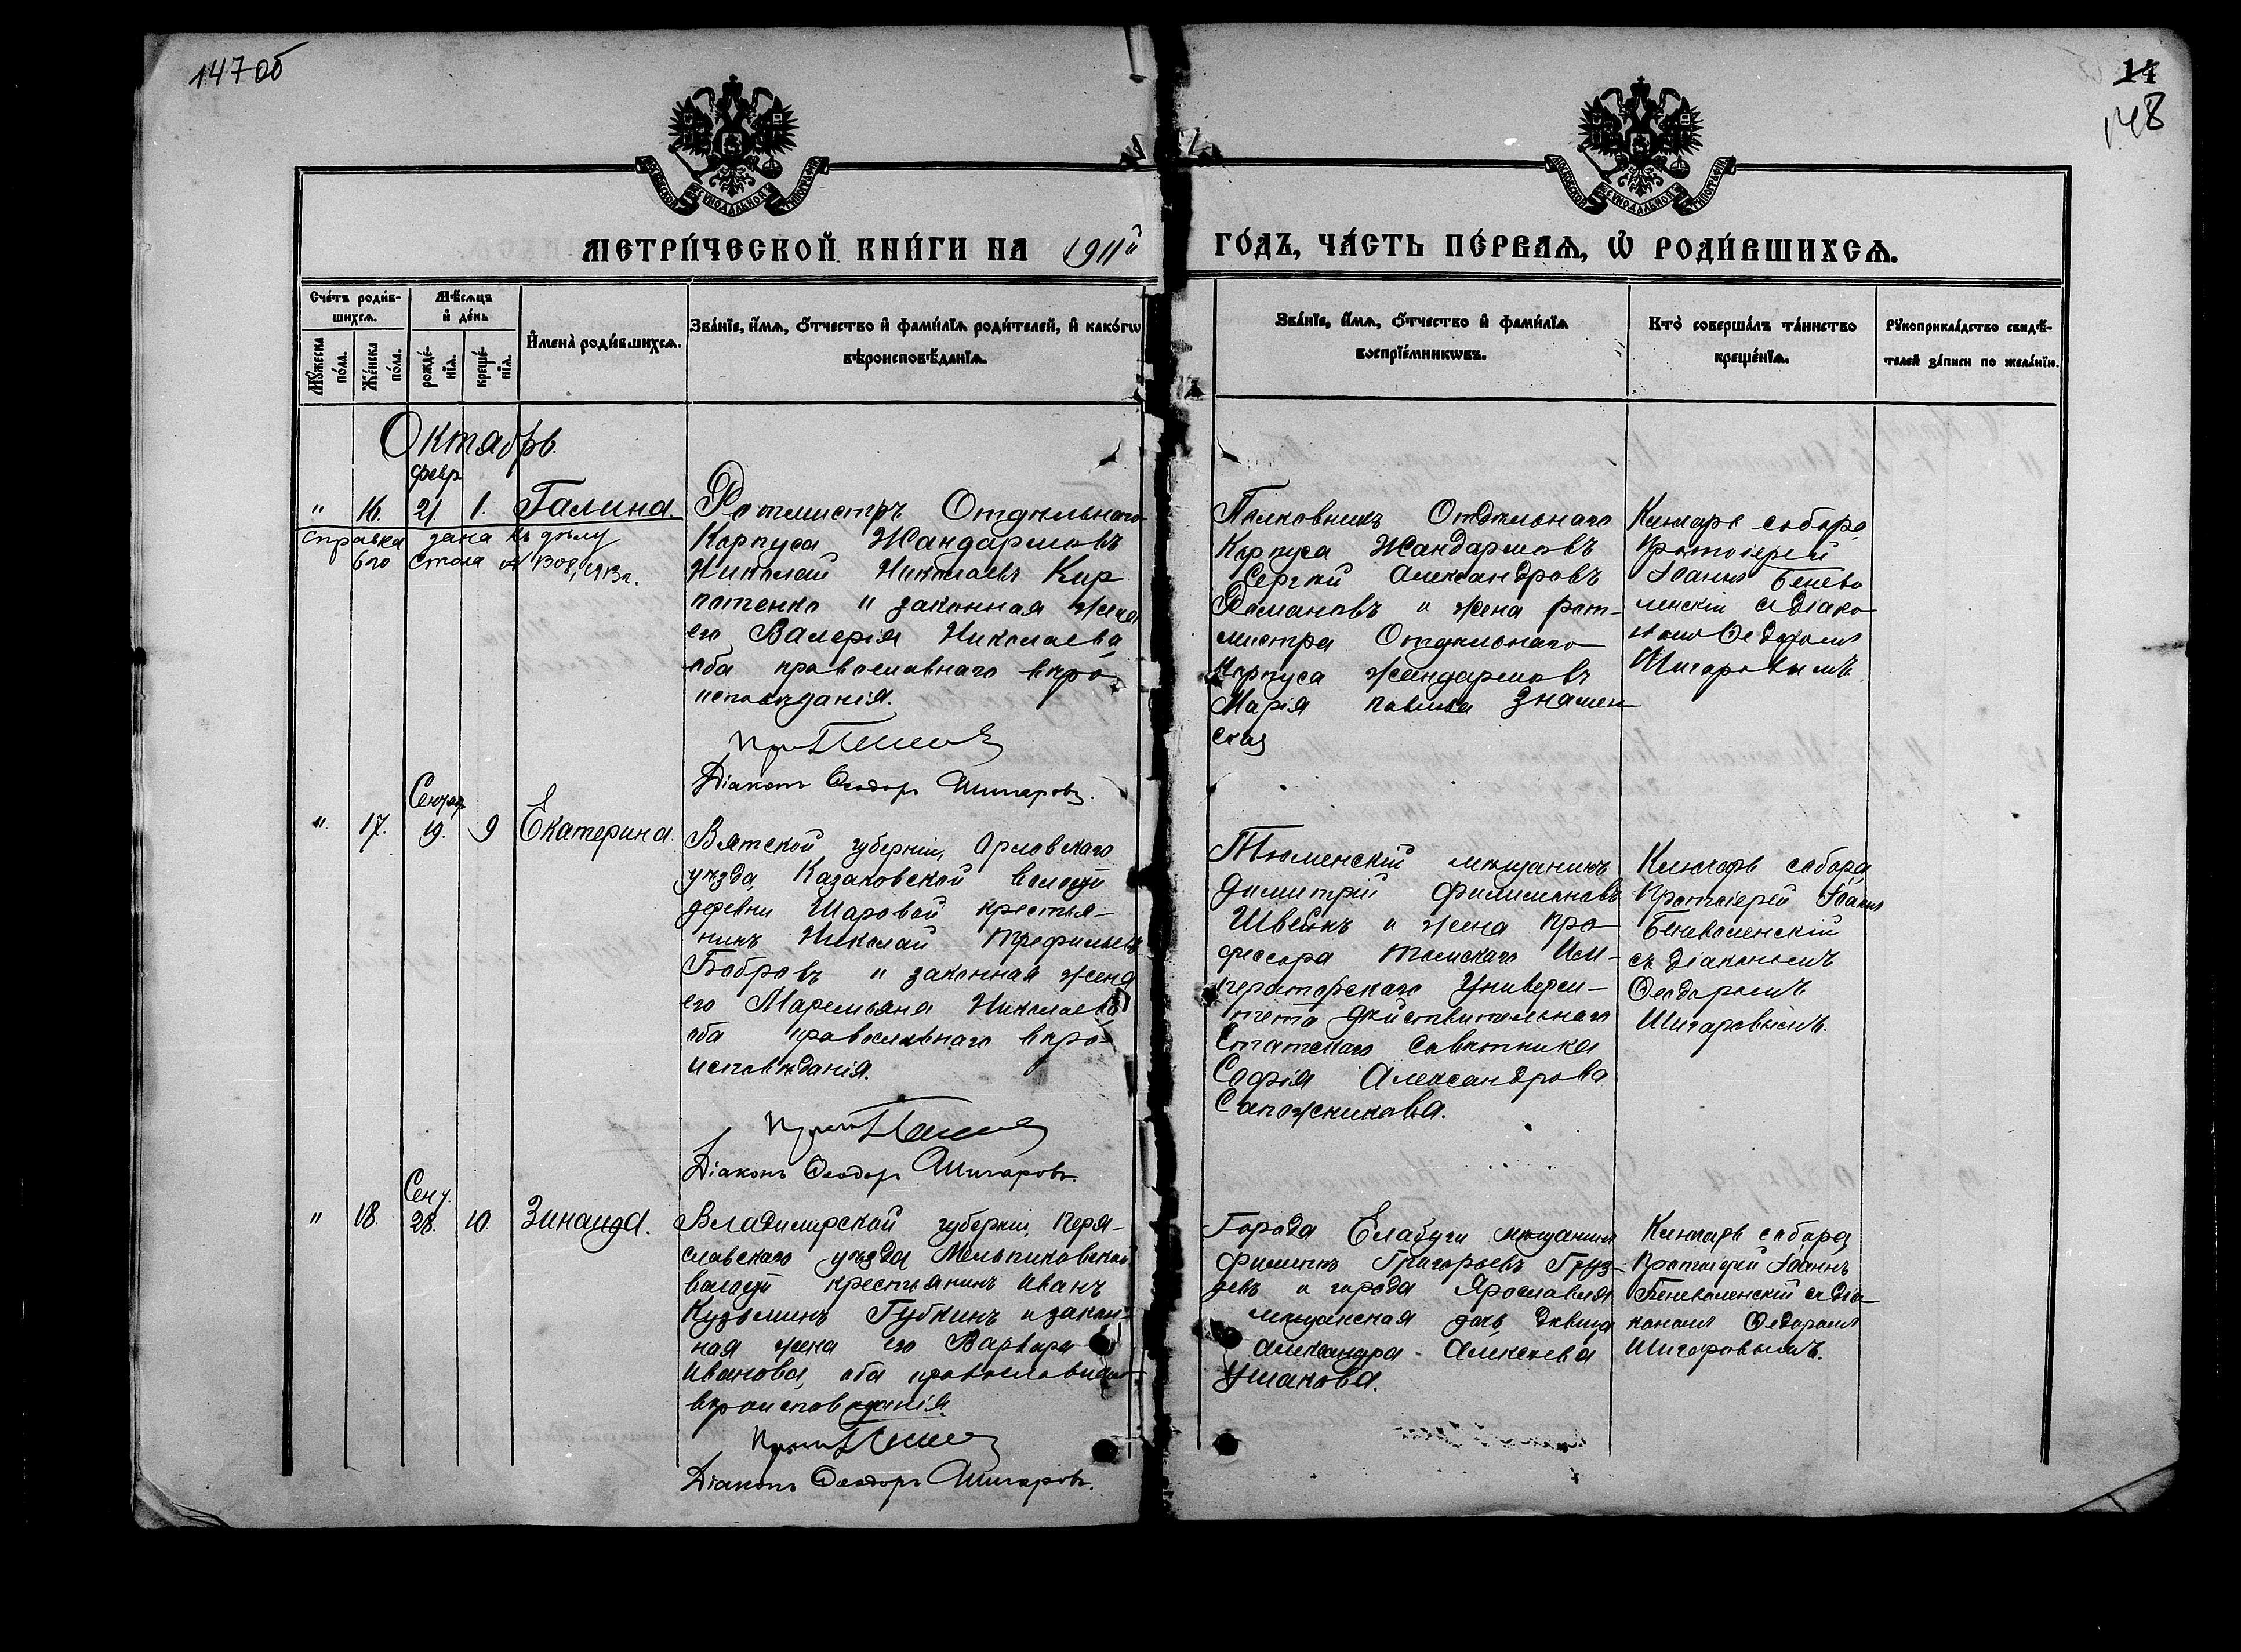 147об
14
148
МОСКОВСКОЙ СѴНОДАЛЬНОЙ ТИПОГРАФІИ
МОСКОВСКОЙ СѴНОДАЛЬНОЙ ТИПОГРАФІИ
МЕТРИ́ЧЕСКОЙ КНИ́ГИ НА 1911й ГО́ДЪ, ЧА́СТЬ ПЕ́РВАѦ, Ѡ РОДИ́ВШИХСѦ.
Сче́тъ роди́в-
шихсѧ.
Мꙋ́жеска
по́ла.
Же́нска
по́ла.
Мѣ́сѧцъ
и҆ де́нь
рожде́-
нїѧ.
креще́-
нїѧ.
И҆мена̀ роди́вшихсѧ.
Зва́нїе, и҆́мѧ, ѻ҆́тчество и҆ фами́лїѧ роди́телей, и҆ како́гѡ
вѣроисповѣ́данїѧ.
Зва́нїе, и҆́мѧ, ѻ҆́тчество и҆ фами́лїѧ
воспрїе́мникѡвъ.
Кто̀ соверша́лъ та́инство
креще́нїѧ.
Рꙋкоприкла́дство свидѣ́-
телей за́писи по жела́нїю.
Октябрь.
февр
" 16. 21. 1. Галина.
Справка дана къ дѣлу
6го стола № 1308, 1913г.
Ротмистръ Отдѣльнаго
Корпуса Жандармовъ
Николай Николаевъ Кир
потенко и законная жена
его Валерія Николаева
оба православнаго вѣро-
исповѣданія.
Діаконъ Ѳеодоръ Шигаровъ.
Полковникъ Отдѣльнаго
Корпуса Жандармовъ
Сергѣй Александровъ
Романовъ и жена рот-
мистра Отдѣльнаго
Корпуса жандармовъ
Марія Павлова Знамен
ская
Ключарь собора
Протоіерей
Іоаннъ Бенево
ленскій съ діако
номъ Ѳеодоромъ
Шигаровымъ.
Сентяб
". 17. 19. 9 Екатерина.
Вятской губерніи, Орловскаго
уѣзда, Казаковской волости
деревни Шаровой крестья-
нинъ Николай Трефильевъ
Бобровъ и законная жена
его Маремьяна Николаева
оба православнаго вѣро-
исповѣданія.
Діаконъ Ѳеодоръ Шигаровъ.
Тюменскій мѣщанинъ
Димитрій Филимоновъ
Швецовъ и жена про-
фессора Томскаго Им-
ператорскаго Универси-
тета Дѣйствительнаго
Статскаго Совѣтника
Софія Александрова
Сапожникова.
Ключарь собора,
Протоіерей Іоаннъ
Беневоленскій
съ діакономъ
Ѳеодоромъ
Шигаровымъ.
Сент.
" 18. 28. 10. Зинаида.
Владимірской губерніи, Перя-
славскаго уѣзда
волости крестьянинъ Иванъ
Кузьминъ Губкинъ и закон-
ная жена его Варвара
Иванова, оба православнаго
вѣроисповѣданія.
Діаконъ Ѳеодоръ Шигаровъ.
Города Елабуги мѣщанинъ
Филиппъ Григорьевъ Груз-
девъ и города Ярославля
мѣщанская дочь, дѣвица
Александра Алексѣева
Ушакова.
Ключарь собора
Протоіерей Іоаннъ
Беневоленскій съ Діа-
кономъ Ѳеодоромъ
Шигаровымъ.